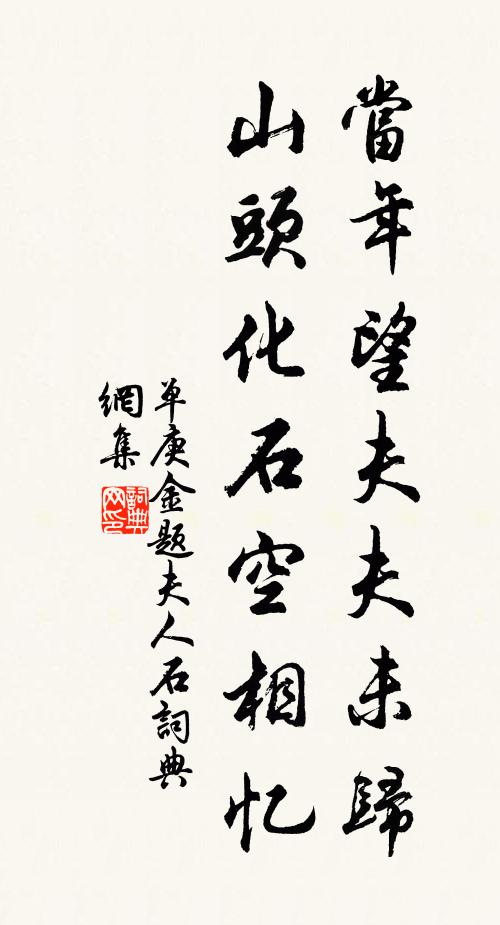 當年望夫夫未歸
山頭化石空相忆
单庚金题夫人石詞典
網集
詞典
网印